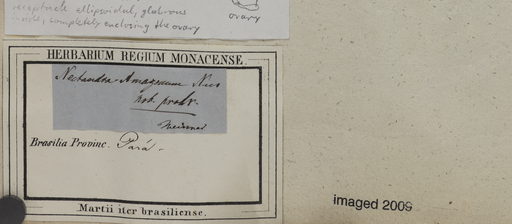 receptacle ellipsoidal, glabrous
inside, completely enclosing the ovary
ovary
HERBARIUM REGIUM MONACENSE.
Nectandra Amazonum Nees
Meissner
Brasilia Provinc. Pará.
Martii iter brasiliense.
imaged 2009